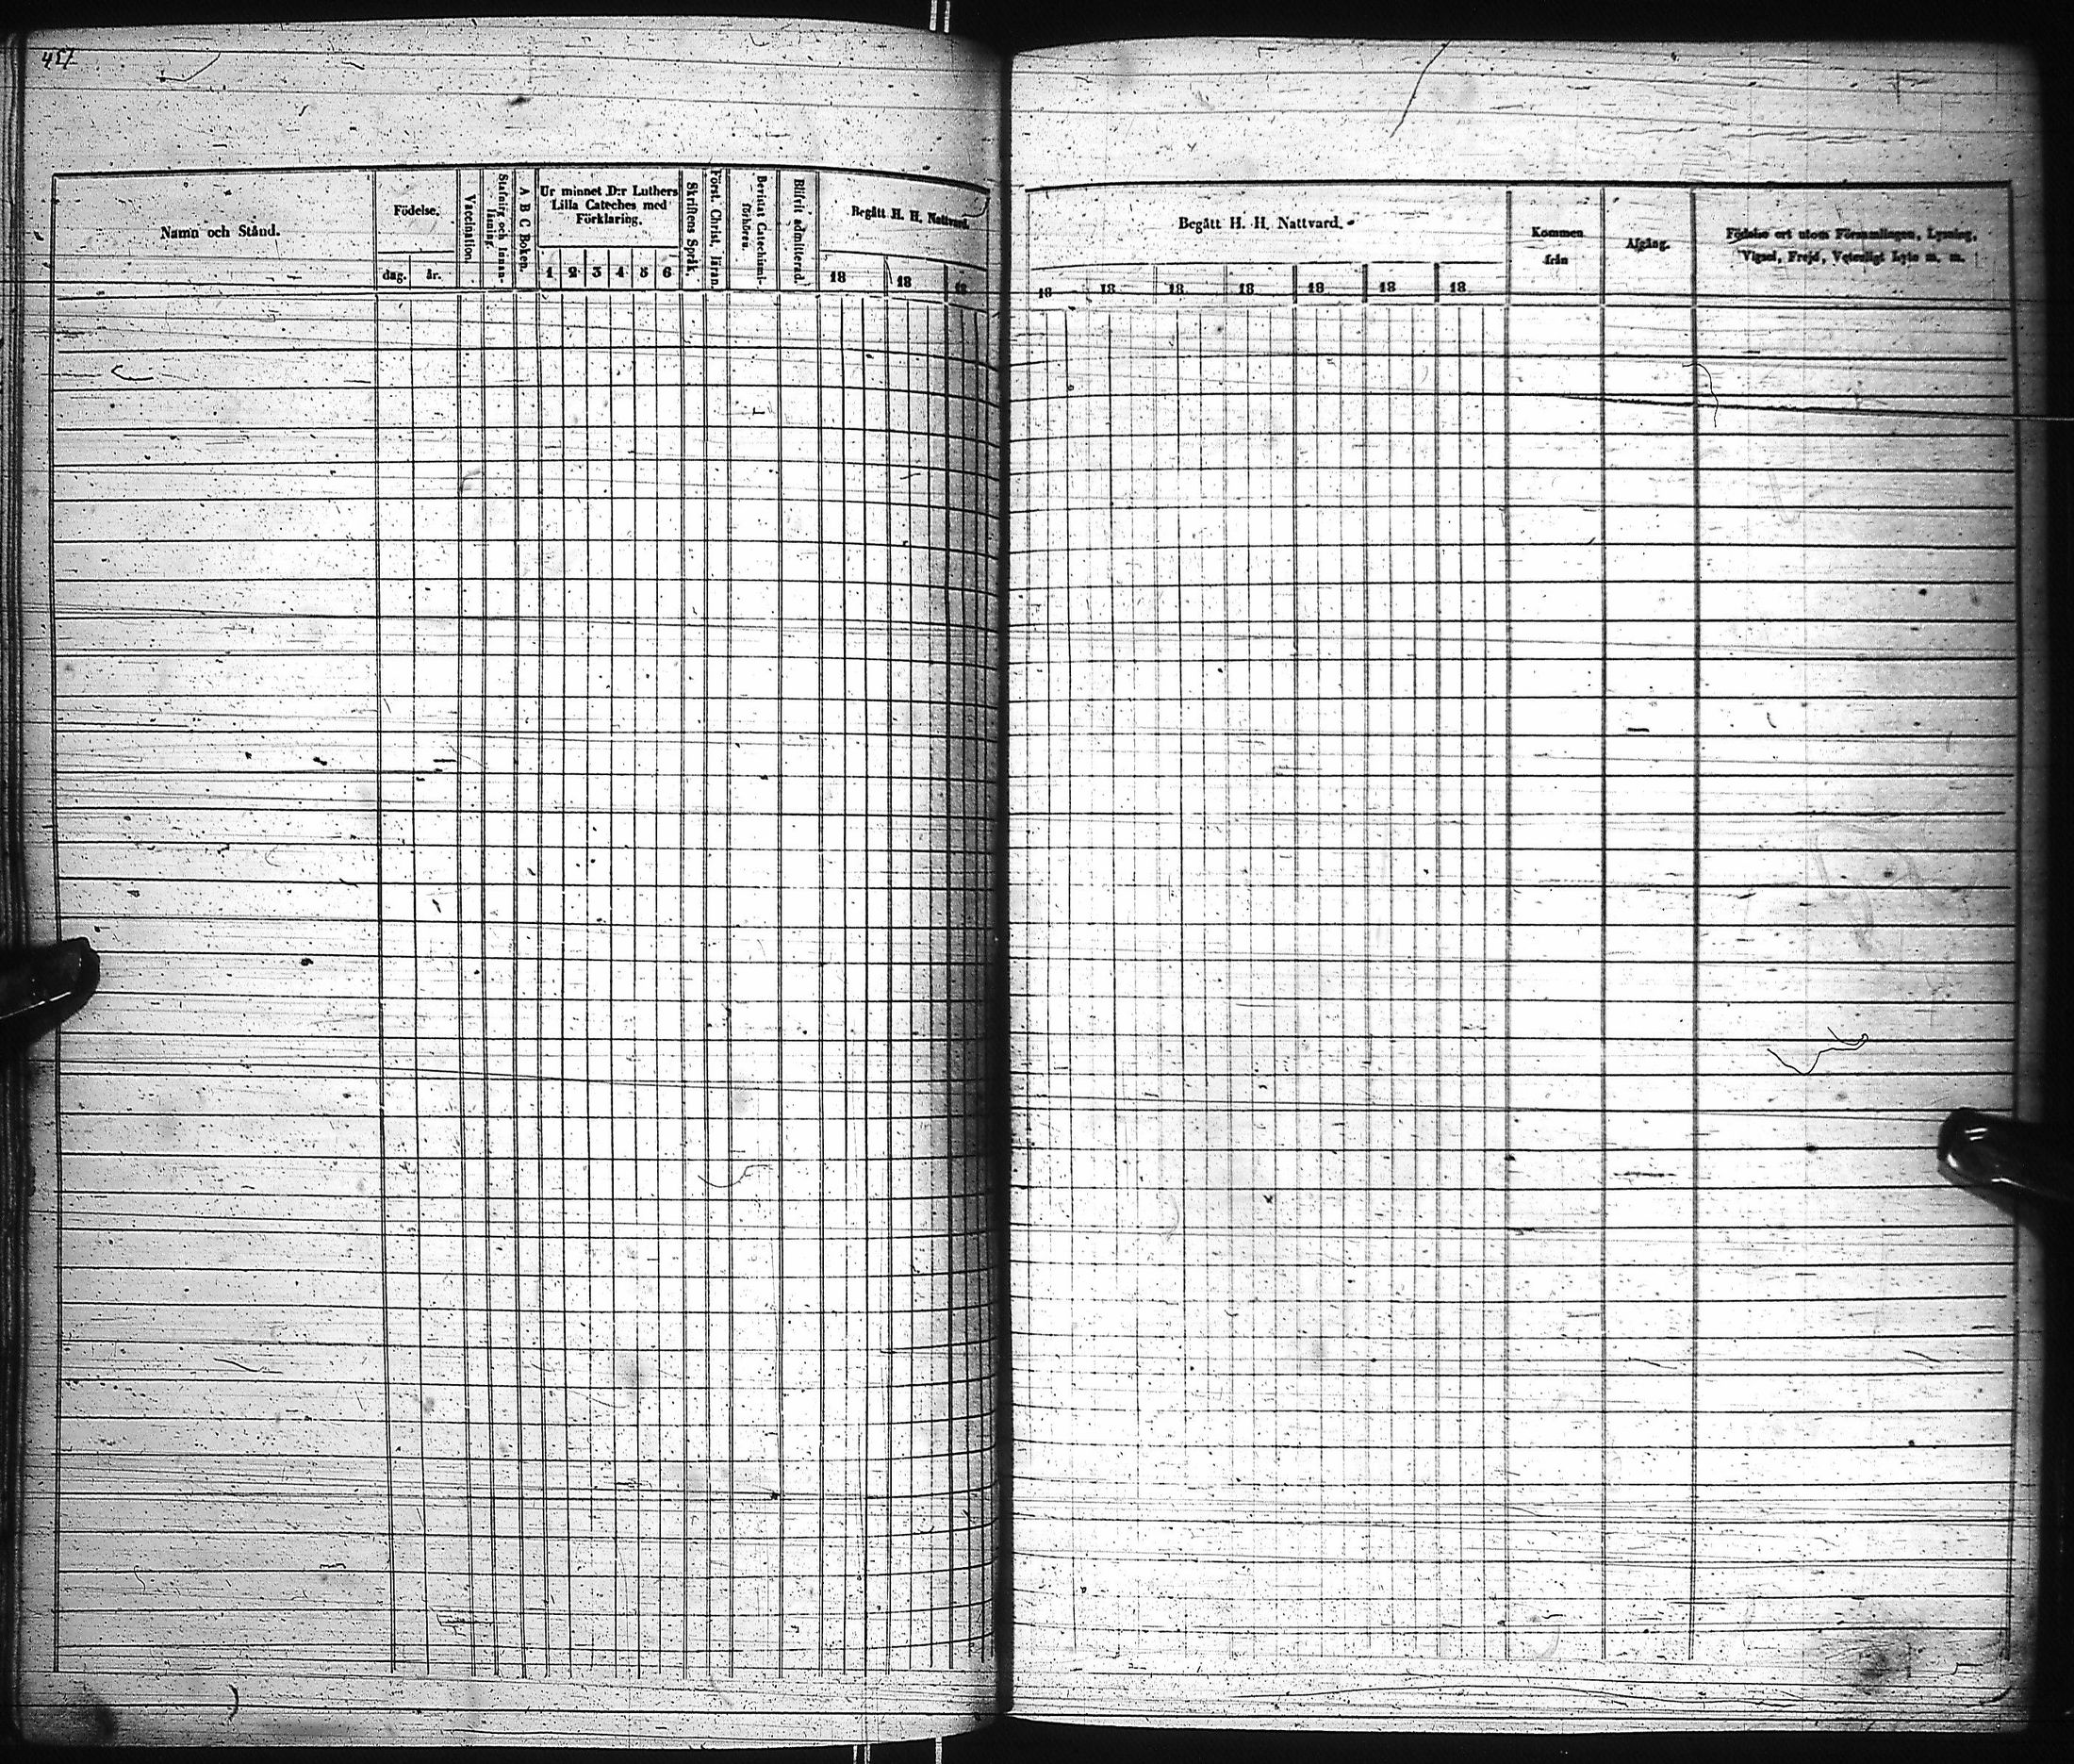 457
Namn och Stånd.
Födelse.
dag.
år.
Vaccination.
Stafning och Innan-
läsning.
A B C Boken.
Ur minnet D:r Luthers
Lilla Cateches med
Förklaring.
1 2 3 4 5 6
Skriftens Språk.
Först. Christ. läran.
Bevistat Catechismi-
förhören.
Blifvit admitterad.
Begått H. H. Nattvard.
18 18 18
Begått H. H. Nattvard.
18 18 18 18 18 18 18
Kommen
från
Afgång.
Födelse ort utom Församlingen, Lysning,
Vigsel, Frejd, Veterligt Lyte m. m.